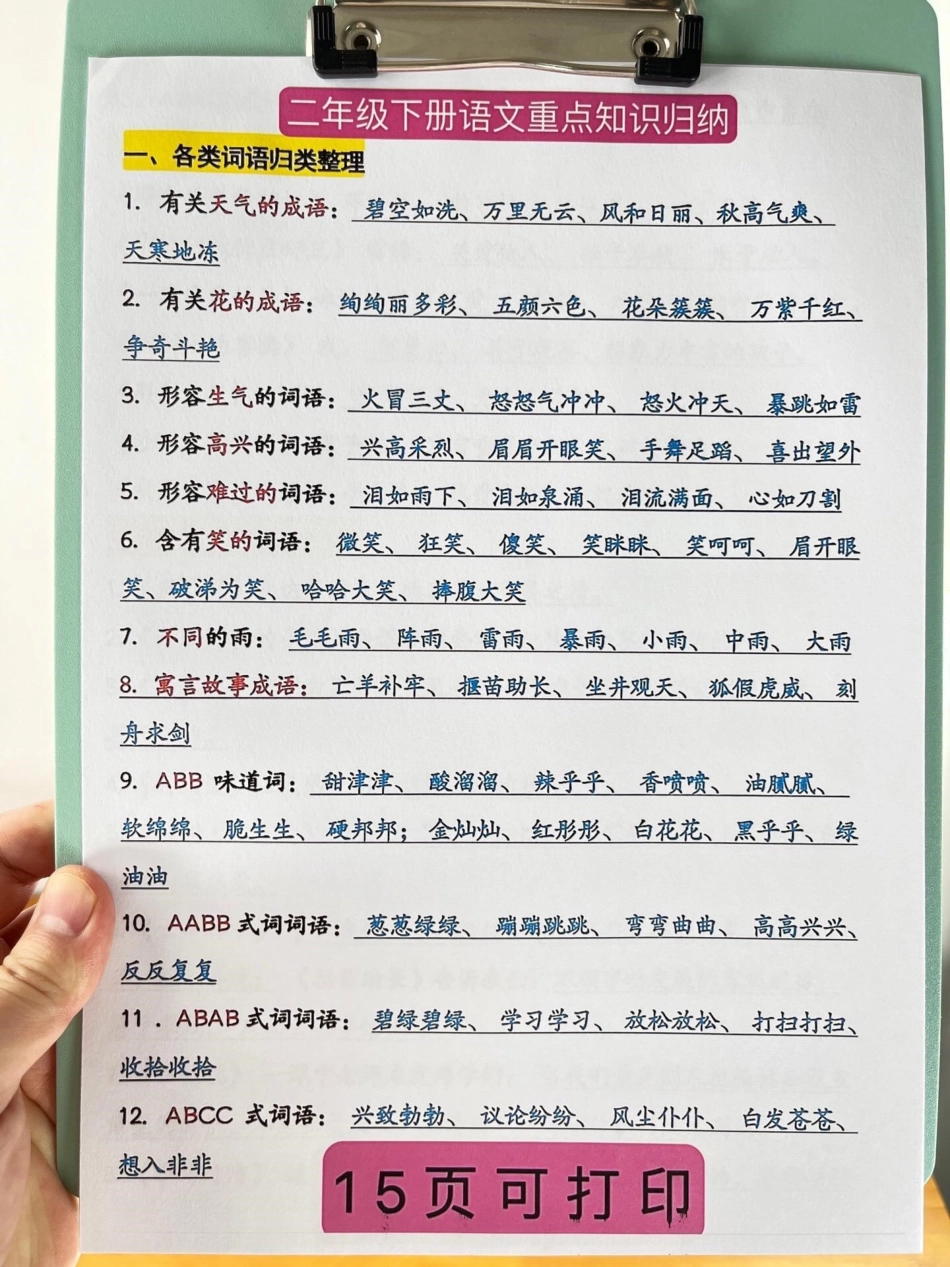 二年级下册语文重点知识归纳
一、各类词语归类整理
1. 有关天气的成语：碧空如洗、万里无云、风和日丽、秋高气爽、
天寒地冻
2. 有关花的成语：绚绚丽多彩、五颜六色、花朵簇簇、万紫千红、
争奇斗艳
3. 形容生气的词语：火冒三丈、怒怒气冲冲、怒火冲天、暴跳如雷
4. 形容高兴的词语：兴高采烈、眉眉开眼笑、手舞足蹈、喜出望外
5. 形容难过的词语：泪如雨下、泪如泉涌、泪流满面、心如刀割
6. 含有笑的词语：微笑、狂笑、傻笑、笑眯眯、笑呵呵、眉开眼
笑、破涕为笑、哈哈大笑、捧腹大笑
7. 不同的雨：毛毛雨、阵雨、雷雨、暴雨、小雨、中雨、大雨
8. 寓言故事成语：亡羊补牢、揠苗助长、坐井观天、狐假虎威、刻
舟求剑
9. ABB 味道词：甜津津、酸溜溜、辣乎乎、香喷喷、油腻腻、
软绵绵、脆生生、硬邦邦；金灿灿、红彤彤、白花花、黑乎乎、绿
油油
10. AABB 式词词语：葱葱绿绿、蹦蹦跳跳、弯弯曲曲、高高兴兴、
反反复复
11．ABAB 式词词语：碧绿碧绿、学习学习、放松放松、打扫打扫、
收拾收拾
12. ABCC 式词语：兴致勃勃、议论纷纷、风尘仆仆、白发苍苍、
想入非非
15页可打印